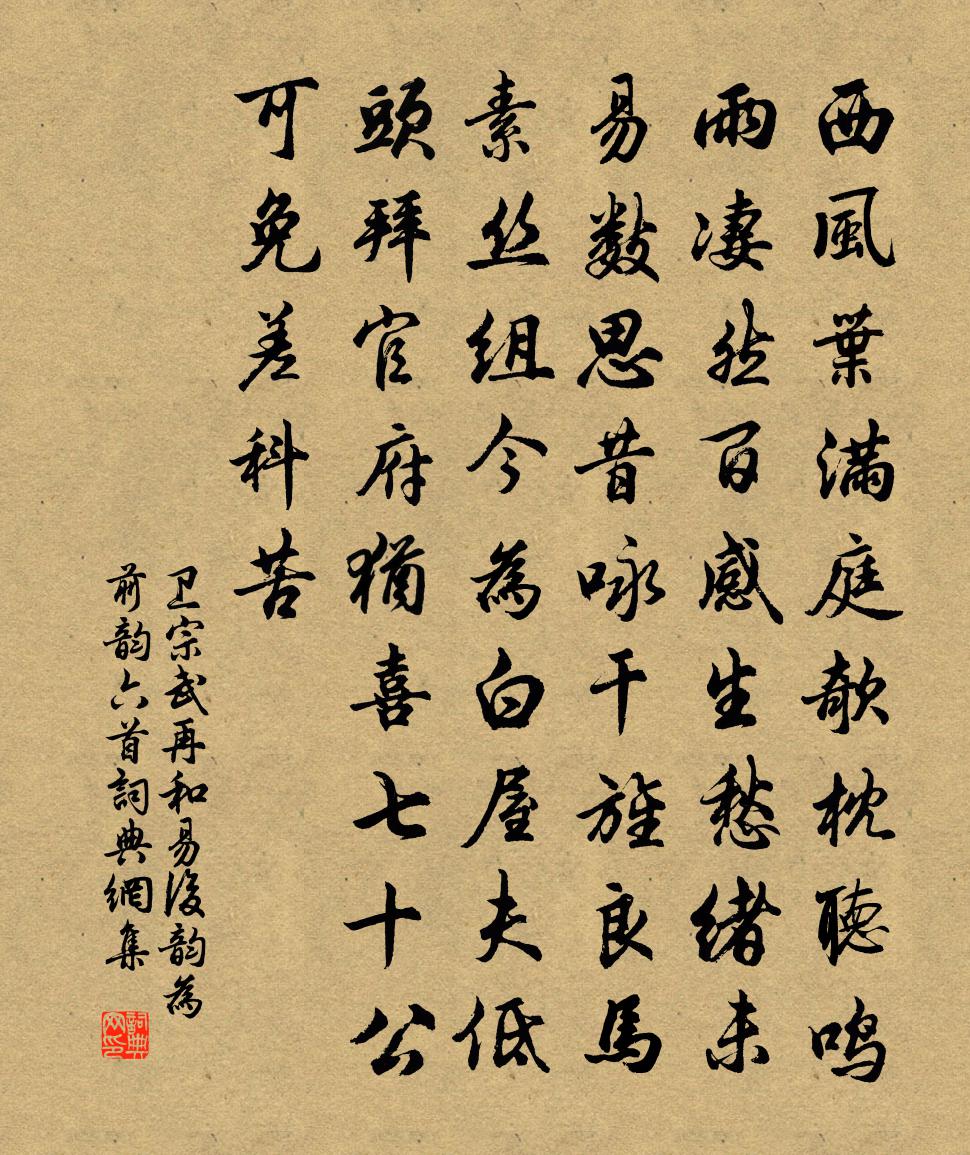 西風葉滿庭欹枕聽鸣
雨凄然百感生愁緒未
易數思昔咏干旌良馬
素丝組今為白屋夫低
頭拜官府猶喜七十公
可免差科苦
卫宗武再和易後韵為
前韵六首詞典網集
詞典网印